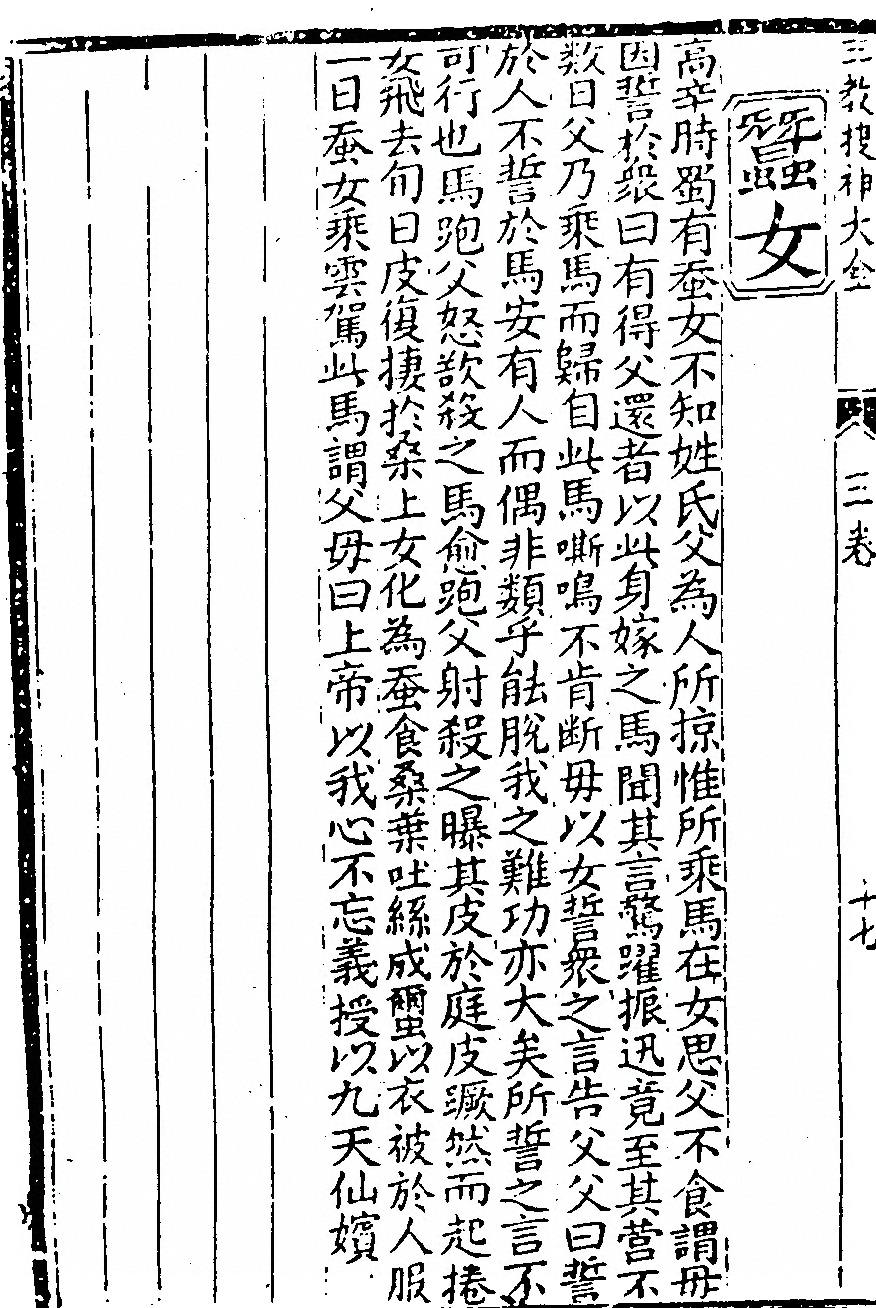 三教搜神大全
三卷
十七
蠶女
高辛時蜀有蚕女不知姓氏父為人所掠惟所乘馬在女思父不食謂毋
因誓於衆曰有得父還者以此身嫁之馬聞其言驚躍振迅竟至其营不
数日父乃乘馬而歸自此馬嘶鳴不肯断毋以女誓衆之言告父父曰誓
於人不誓於馬安有人而偶非類乎能脫我之難功亦大矣所誓之言不
可行也馬跑父怒欲殺之馬愈跑父射殺之曝其皮於庭皮蹶然而起捲
女飛去旬日皮復捿於桑上女化為蚕食桑葉吐絲成蠒以衣被於人服
一日蚕女乘雲駕此馬謂父毋曰上帝以我心不忘義授以九天仙嬪